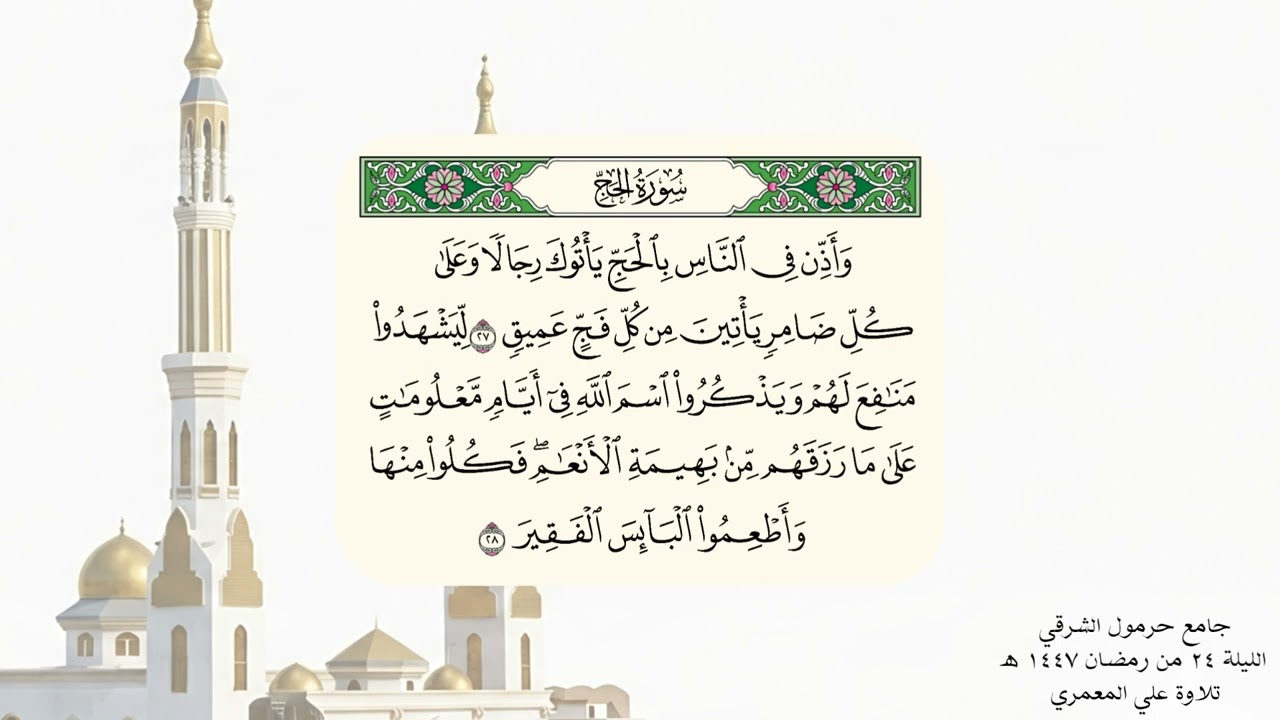 سُورَةُ الحَجِّ
وَأَذِّن فِي ٱلنَّاسِ بِٱلْحَجِّ يَأْتُوكَ رِجَالًا وَعَلَىٰ
كُلِّ ضَامِرٍ يَأْتِينَ مِن كُلِّ فَجٍّ عَمِيقٍ ٢٧ لِّيَشْهَدُوا۟
مَنَٰفِعَ لَهُمْ وَيَذْكُرُوا۟ ٱسْمَ ٱللَّهِ فِىٓ أَيَّامٍ مَّعْلُومَٰتٍ
عَلَىٰ مَا رَزَقَهُم مِّنۢ بَهِيمَةِ ٱلْأَنْعَٰمِ ۖ فَكُلُوا۟ مِنْهَا
وَأَطْعِمُوا۟ ٱلْبَآئِسَ ٱلْفَقِيرَ ٢٨
جامع حرمول الشرقي
الليلة ٢٤ من رمضان ١٤٤٧ هـ
تلاوة علي المعمري